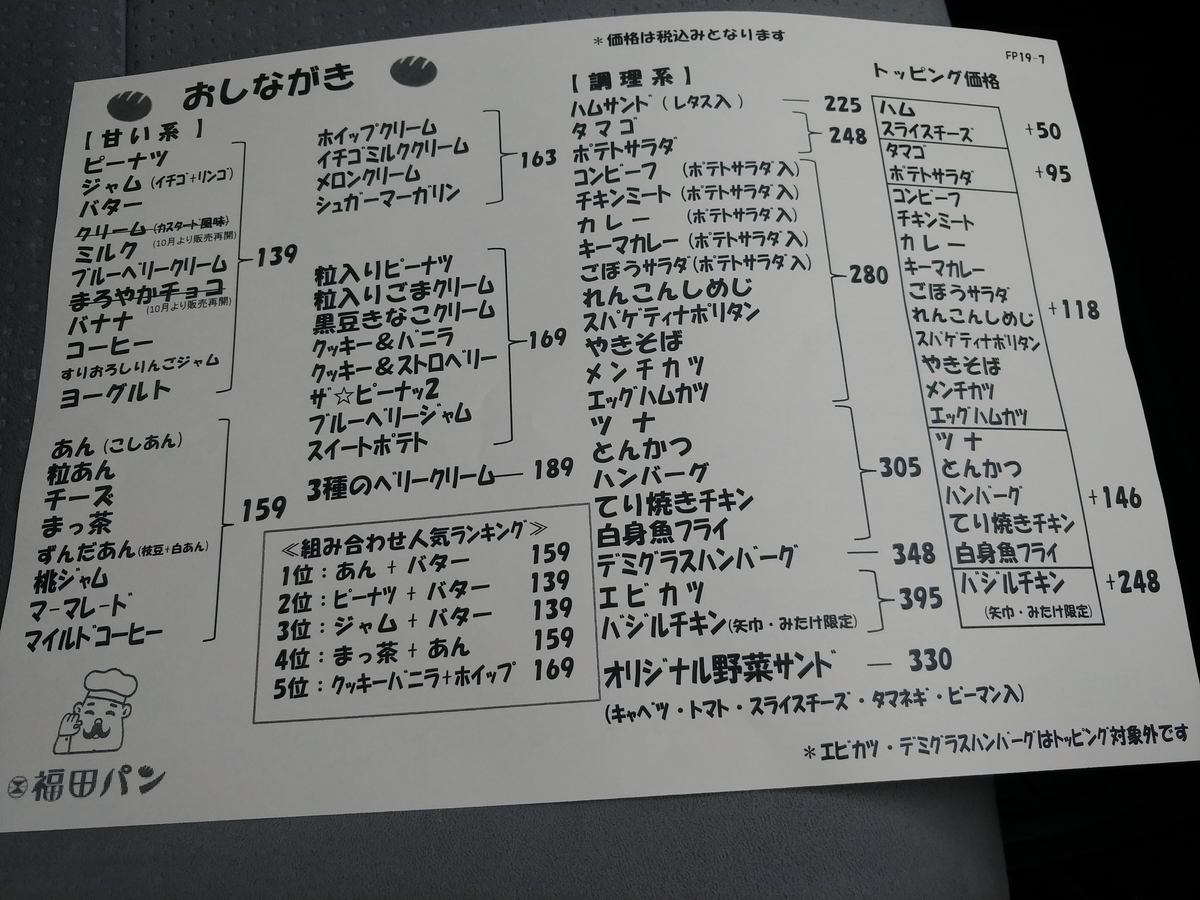 ＊価格は税込みとなります
FP19-7
おしながき
【甘い系】
ピーナツ
ジャム（イチゴ+リンゴ）
バター
クリーム（カスタード風味）
(10月より販売再開)
ミルク
ブルーベリークリーム
まろやかチョコ
(10月より販売再開)
バナナ
コーヒー
すりおろしりんごジャム
ヨーグルト
139
あん（こしあん）
粒あん
チーズ
まっ茶
ずんだあん（枝豆+白あん）
桃ジャム
マーマレード
マイルドコーヒー
159
福田パン
ホイップクリーム
イチゴミルククリーム
メロンクリーム
シュガーマーガリン
163
粒入りピーナツ
粒入りごまクリーム
黒豆きなこクリーム
クッキー＆バニラ
クッキー＆ストロベリー
ザ☆ピーナッ2
ブルーベリージャム
スイートポテト
169
3種のベリークリーム 189
≪組み合わせ人気ランキング≫
1位：あん + バター 159
2位：ピーナツ + バター 139
3位：ジャム + バター 139
4位：まっ茶 + あん 159
5位：クッキーバニラ+ホイップ 169
【調理系】
ハムサンド（レタス入） 225
タマゴ
ポテトサラダ
248
コンビーフ （ポテトサラダ入）
チキンミート（ポテトサラダ入）
カレー （ポテトサラダ入）
キーマカレー（ポテトサラダ入）
ごぼうサラダ（ポテトサラダ入）
れんこんしめじ
スパゲティナポリタン
やきそば
メンチカツ
エッグハムカツ
280
ツナ
とんかつ
ハンバーグ
てり焼きチキン
白身魚フライ
305
デミグラスハンバーグ 348
エビカツ
バジルチキン（矢巾・みたけ限定）
395
オリジナル野菜サンド 330
（キャベツ・トマト・スライスチーズ・タマネギ・ピーマン入）
トッピング価格
ハム
スライスチーズ
+50
タマゴ
ポテトサラダ
+95
コンビーフ
チキンミート
カレー
キーマカレー
ごぼうサラダ
れんこんしめじ
スパゲティナポリタン
やきそば
メンチカツ
エッグハムカツ
+118
ツナ
とんかつ
ハンバーグ
てり焼きチキン
白身魚フライ
+146
バジルチキン
（矢巾・みたけ限定）
+248
＊エビカツ・デミグラスハンバーグはトッピング対象外です